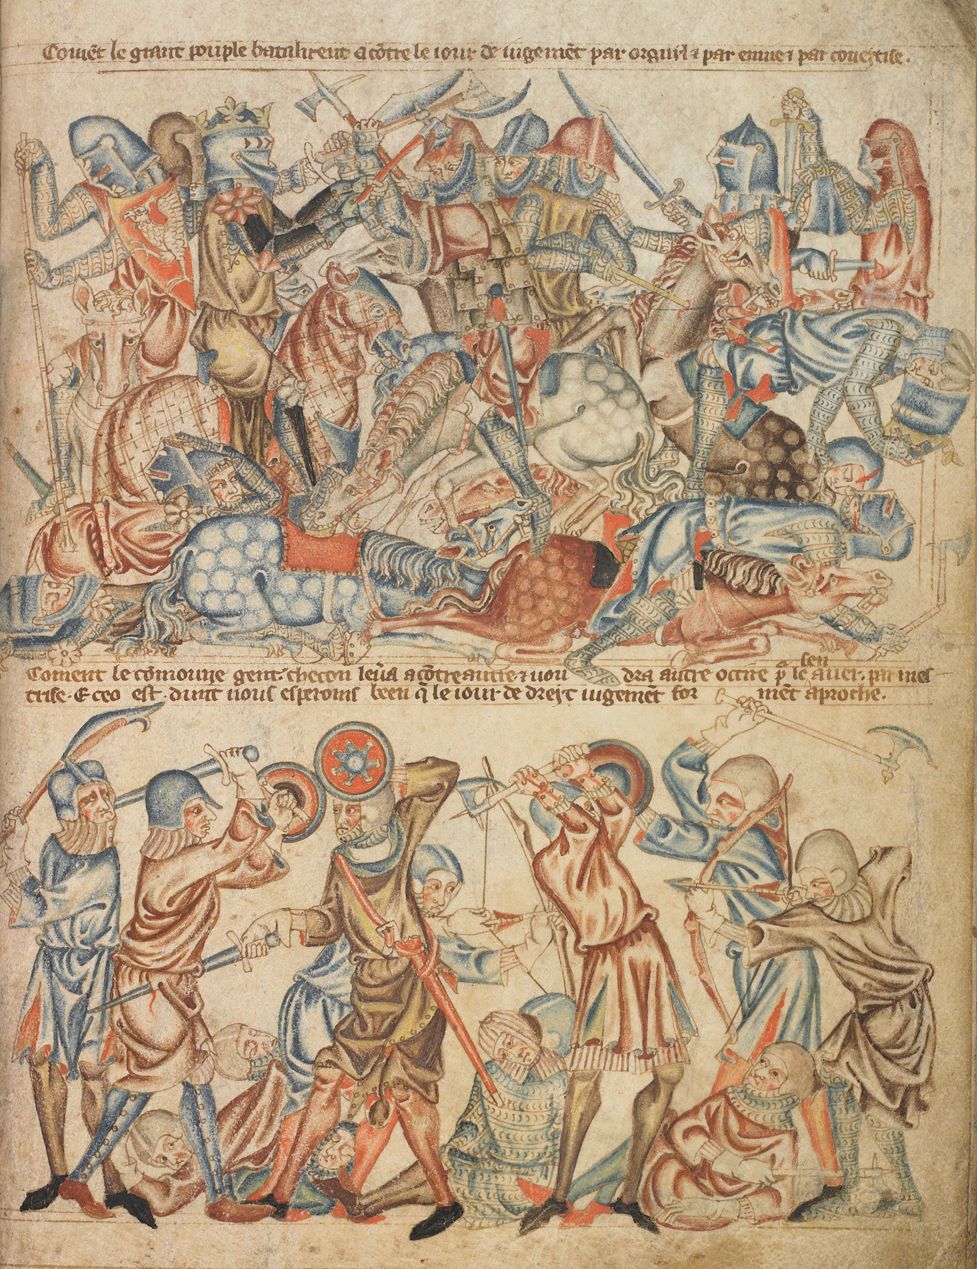 Comēt le grant pouple batailirent acōtre le iour de iugemēt par orguyl ⁊ par enuie ⁊ par coueytise.
Coment le cōmoune gent · checon leua acōtre autre · ⁊ uou dra autre occire le auer ·
len
trise · E ceo est · dunt nous esperoms been q̄ le iour de dreyt iugemēt for mēt aproche.